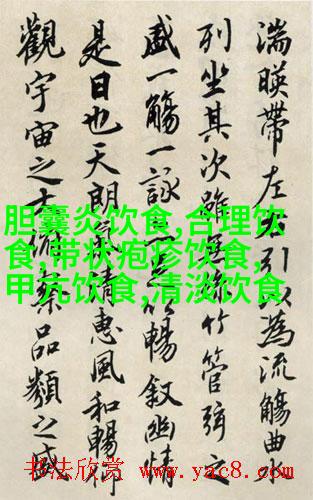 湍暎帶左右引以為流觴曲水
列坐其次雖無絲竹管弦之
盛一觴一詠亦足以暢敘幽情
是日也天朗氣清惠風和暢仰
觀宇宙之大俯察品類之盛
胆囊炎饮食,合理饮
食,带状疱疹饮食,
甲亢饮食,清淡饮食
书法欣赏 www.yac8.com